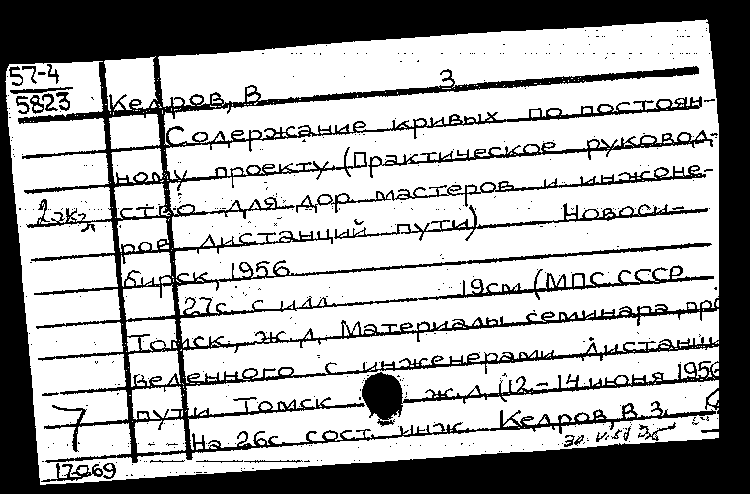 57-4
5823
Кедров, В З
Содержание кривых по постоян-
ному проекту. (Практическое руковод-
2 экз.
ство для дор. мастеров и инжоне-
ров дистанций пути) Новоси-
бирск, 1956
27с. с илл. 19см (МПС СССР
Томск., ж.д. Материалы семинара, про
веденного с инженерами дистанци
пути Томск ж.д. (12-14 июня 1956
7
На 26с. сост. инж. Кедров, В.З.
17069